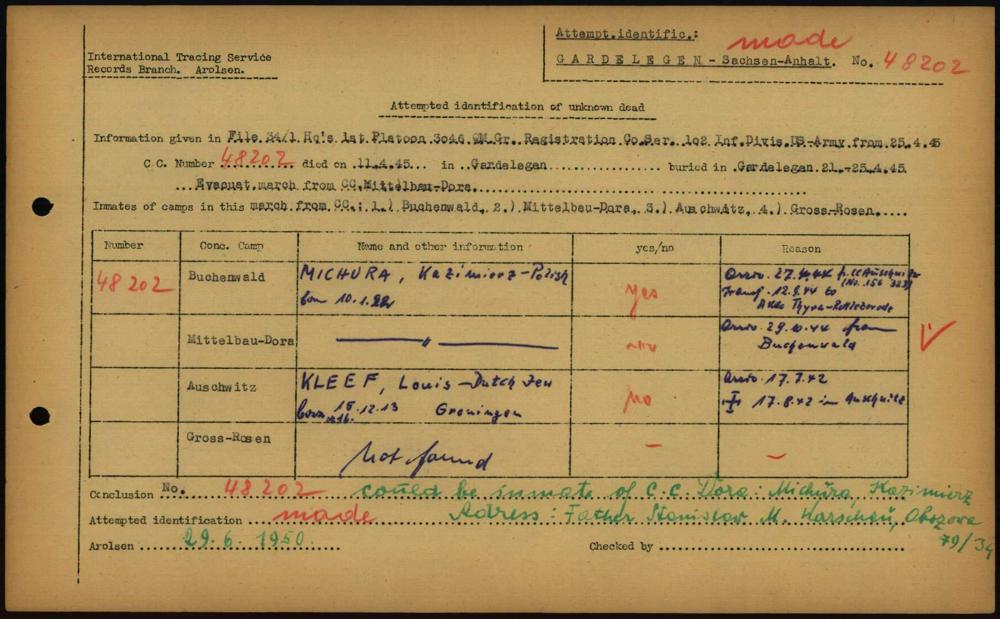 International Tracing Service
Records Branch. Arolsen.
Attempt.identific.: made
GARDELEGEN - Sachsen-Anhalt. No. 48202
Attempted identification of unknown dead
Information given in File 34/1 Hq's 1st Platoon 3046 QM.Gr. Registration Co.Ser. 102 Inf.Divis.US-Army from 25.4.45
C.C. Number 48202 died on 11.4.45 in Gardelegen buried in Gardelegen 21.-25.4.45.
Evacuat.march from CC.Mittelbau-Dora
Inmates of camps in this march from CC.: 1.) Buchenwald, 2.) Mittelbau-Dora, 3.) Auschwitz, 4.) Gross-Rosen
Number Conc. Camp Name and other information yes/no Reason
48202 Buchenwald MICHURA, Kazimierz-Polish yes Arriv. 27.4.44 fr. CC Auschwitz
born 10.1.22 Transf. 12.9.44 to
Mittelbau-Dora " Arriv. 29.10.44 from
Buchenwald
Auschwitz KLEEF, Louis-Dutch Jew No Arriv. 17.7.42
born 15.12.13 Groningen 17.8.42 in Auschwitz
Gross-Rosen Not found - -
Conclusion No. 48202 could be inmate of C.C. Dora: Michura, Kazimierz
Attempted identification made Adress: Father Stanislaw M. Warschau, Obozowa
79/34
Arolsen 29.6.1950. Checked by